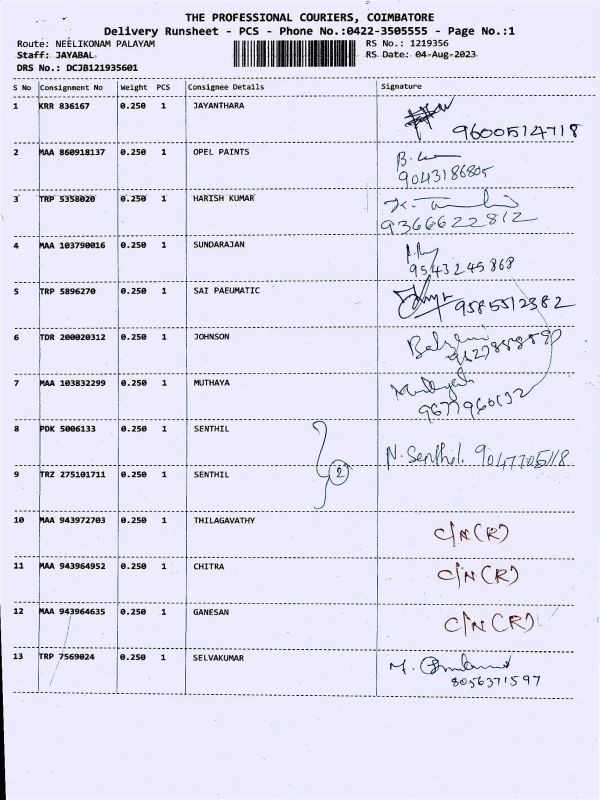 THE PROFESSIONAL COURIERS, COIMBATORE
Delivery Runsheet - PCS - Phone No.:0422-3505555 - Page No.:1
Route: NEELIKONAM PALAYAM RS No.: 1219356
Staff: JAYABAL RS Date: 04-Aug-2023
DRS No.: DCJB121935601
S No Consignment No Weight PCS Consignee Details Signature
1 KRR 836167 0.250 1 JAYANTHARA
9600514718
2 MAA 860918137 0.250 1 OPEL PAINTS
9043186805
3 TRP 5358020 0.250 1 HARISH KUMAR
9366622812
4 MAA 103790016 0.250 1 SUNDARAJAN
9543245868
5 TRP 5896270 0.250 1 SAI PAEUMATIC
9585512382
6 TDR 200020312 0.250 1 JOHNSON
7 MAA 103832299 0.250 1 MUTHAYA
9677960132
8 PDK 5006133 0.250 1 SENTHIL
N. Senthil. 9047705118
9 TRZ 275101711 0.250 1 SENTHIL 2
10 MAA 943972703 0.250 1 THILAGAVATHY
C/N (R)
11 MAA 943964952 0.250 1 CHITRA
C/N (R)
12 MAA 943964635 0.250 1 GANESAN
C/N (R)
13 TRP 7569024 0.250 1 SELVAKUMAR
8056371597